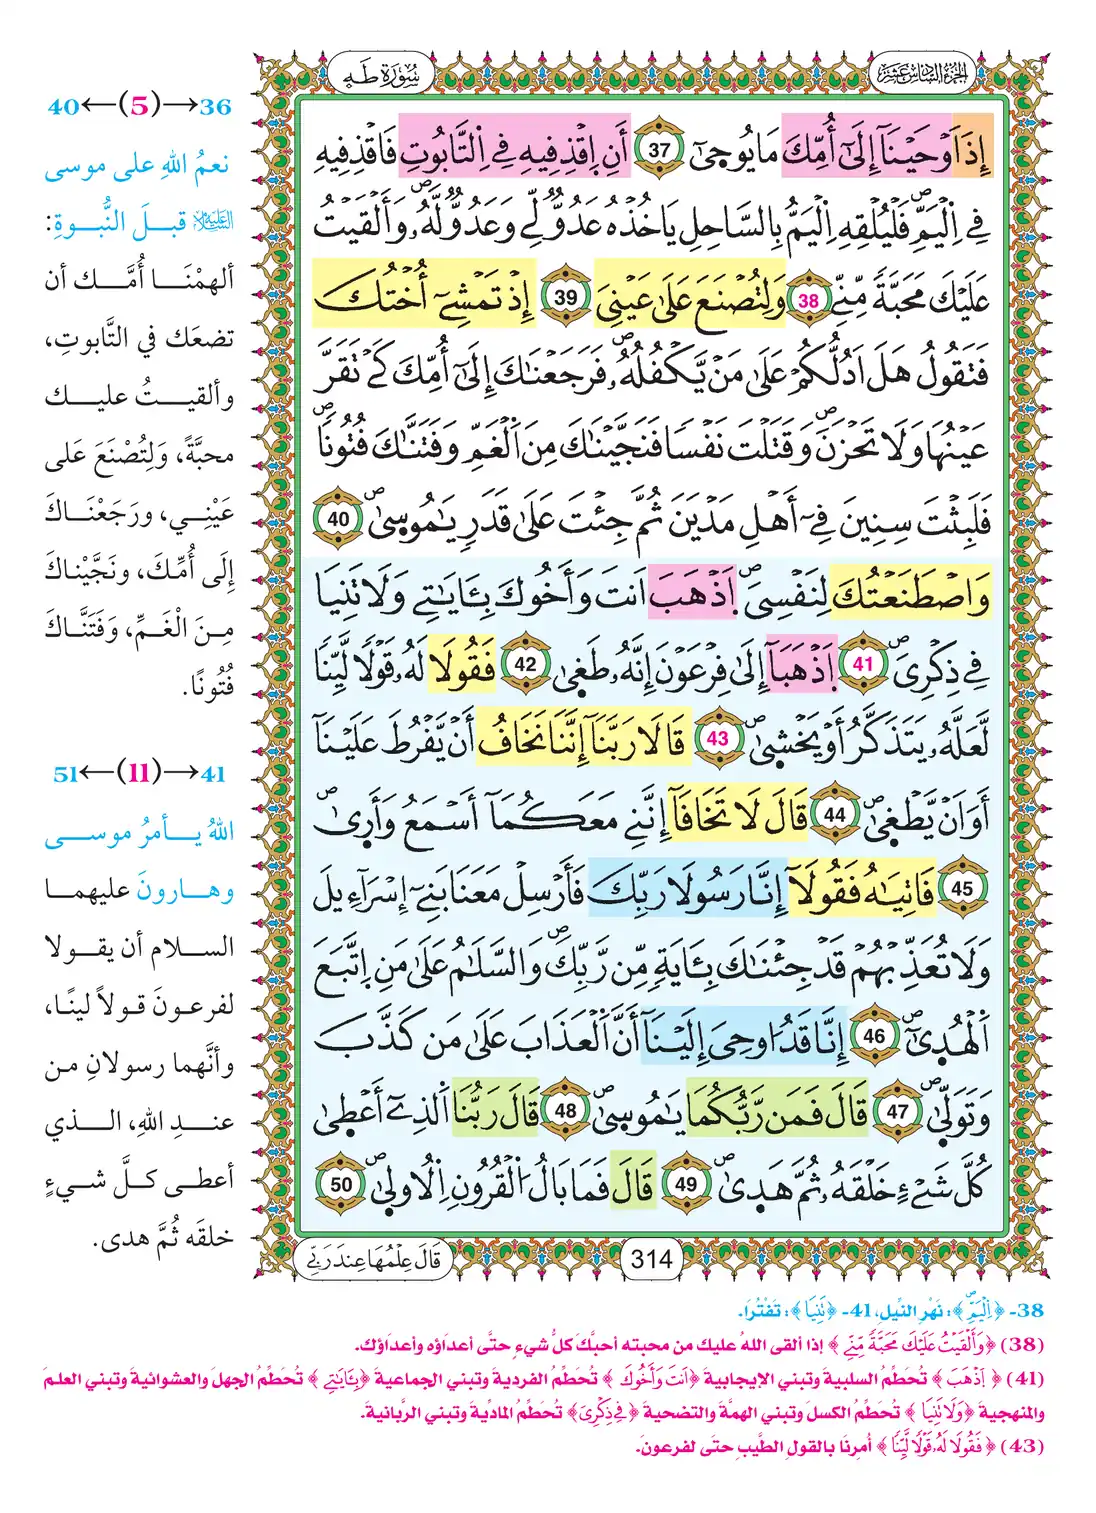 الجزء السادس عشر
سُورَةُ طَهَ
إِذَ اَوْحَيْنَآ إِلَىٰٓ أُمِّكَ مَا يُوحَىٰٓ 37 أَنِ اِقْذِفِيهِ فِے اِلتَّابُوتِ فَاقْذِفِيهِ
فِے اِلْيَمِّۖ فَلْيُلْقِهِ اِلْيَمُّ بِالسَّاحِلِ يَاخُذْهُ عَدُوٌّ لِّے وَعَدُوٌّ لَّهُۥۖ وَأَلْقَيْتُ
عَلَيْكَ مَحَبَّةً مِّنِّے 38 وَلِتُصْنَعَ عَلَىٰ عَيْنِيَ 39 إِذْ تَمْشِےٓ أُخْتُكَ
فَتَقُولُ هَلَ اَدُلُّكُمْ عَلَىٰ مَنْ يَّكْفُلُهُۥۖ فَرَجَعْنَاكَ إِلَىٰٓ أُمِّكَ كَےْ تَقَرَّ
عَيْنُهَا وَلَا تَحْزَنَۖ وَقَتَلْتَ نَفْسًا فَنَجَّيْنَاكَ مِنَ اَلْغَمِّ وَفَتَنَّاكَ فُتُونًاۖ
فَلَبِثْتَ سِنِينَ فِےٓ أَهْلِ مَدْيَنَ ثُمَّ جِئْتَ عَلَىٰ قَدَرٍ يَٰمُوسَىٰۖ 40
وَاصْطَنَعْتُكَ لِنَفْسِیَۖ اَذْهَبَ اَنتَ وَأَخُوكَ بِـَٔايَٰتِے وَلَا تَنِيَا
فِے ذِكْرِیَۖ 41 اَذْهَبَآ إِلَىٰ فِرْعَوْنَ إِنَّهُۥ طَغَىٰ 42 فَقُولَا لَهُۥ قَوْلًا لَّيِّنًا
لَّعَلَّهُۥ يَتَذَكَّرُ أَوْ يَخْشَىٰۖ 43 قَالَا رَبَّنَآ إِنَّنَا نَخَافُ أَنْ يَّفْرُطَ عَلَيْنَآ
أَوَ اَنْ يَّطْغَىٰۖ 44 قَالَ لَا تَخَافَآ إِنَّنِے مَعَكُمَآ أَسْمَعُ وَأَرَىٰۖ
45 فَاتِيَٰهُ فَقُولَآ إِنَّا رَسُولَا رَبِّكَ فَأَرْسِلْ مَعَنَا بَنِےٓ إِسْرَآءِيلَ
وَلَا تُعَذِّبْهُمْ قَدْ جِئْنَاكَ بِـَٔايَةٍ مِّن رَّبِّكَۖ وَالسَّلَٰمُ عَلَىٰ مَنِ اِتَّبَعَ
اَلْهُدَىٰٓۖ 46 إِنَّا قَدُ اوحِيَ إِلَيْنَآ أَنَّ اَلْعَذَابَ عَلَىٰ مَن كَذَّبَ
وَتَوَلَّىٰۖ 47 قَالَ فَمَن رَّبُّكُمَا يَٰمُوسَىٰۖ 48 قَالَ رَبُّنَا اَلذِےٓ أَعْطَىٰ
كُلَّ شَےْءٍ خَلْقَهُۥ ثُمَّ هَدَىٰۖ 49 قَالَ فَمَا بَالُ اُلْقُرُونِ اِلُاولَىٰۖ 50
قَالَ عِلْمُهَا عِندَ رَبِّے
314
36→(5)←40
نعمُ اللهِ على موسى
عليه السلام قبلَ النُّبوةِ:
ألهمْنَا أُمَّك أن
تضعَك في التَّابوتِ،
وألقيتُ عليك
محبَّةً، وَلِتُصْنَعَ عَلى
عَيْنِي، ورَجَعْنَاكَ
إِلَى أُمِّكَ، ونَجَّيْناكَ
مِنَ الْغَمِّ، وَفَتَنَّاكَ
فُتُونًا.
41→(11)←51
اللهُ يأمرُ موسى
وهارونَ عليهما
السلام أن يقولا
لفرعونَ قولاً لينًا،
وأنَّهما رسولانِ من
عندِ اللهِ، الذي
أعطى كلَّ شيءٍ
خلقَه ثُمَّ هدى.
38- ﴿اِلْيَمِّۖ﴾: نَهْرِ النِّيلِ، 41- ﴿تَنِيَا﴾: تَفْتُرَا.
(38) ﴿وَأَلْقَيْتُ عَلَيْكَ مَحَبَّةً مِّنِّے﴾ إذا ألقى اللهُ عليك من محبته أحبَّكَ كلُّ شيءٍ حتَّى أعداؤه وأعداؤك.
(41) ﴿اَذْهَبَ﴾ تُحَطِّمُ السلبية وتبني الإيجابية ﴿اَنتَ وَأَخُوكَ﴾ تُحَطِّمُ الفردية وتبني الجماعية ﴿بِـَٔايَٰتِے﴾ تُحَطِّمُ الجهلَ والعشوائية وتبني العلمَ
والمنهجية ﴿وَلَا تَنِيَا﴾ تُحَطِّمُ الكسلَ وتبني الهمَّة والتضحية ﴿فِے ذِكْرِیَ﴾ تُحَطِّمُ الماديَّة وتبني الرَّبانية.
(43) ﴿فَقُولَا لَهُۥ قَوْلًا لَّيِّنًا﴾ أُمِرنَا بالقولِ الطَّيبِ حتَّى لفرعونَ.